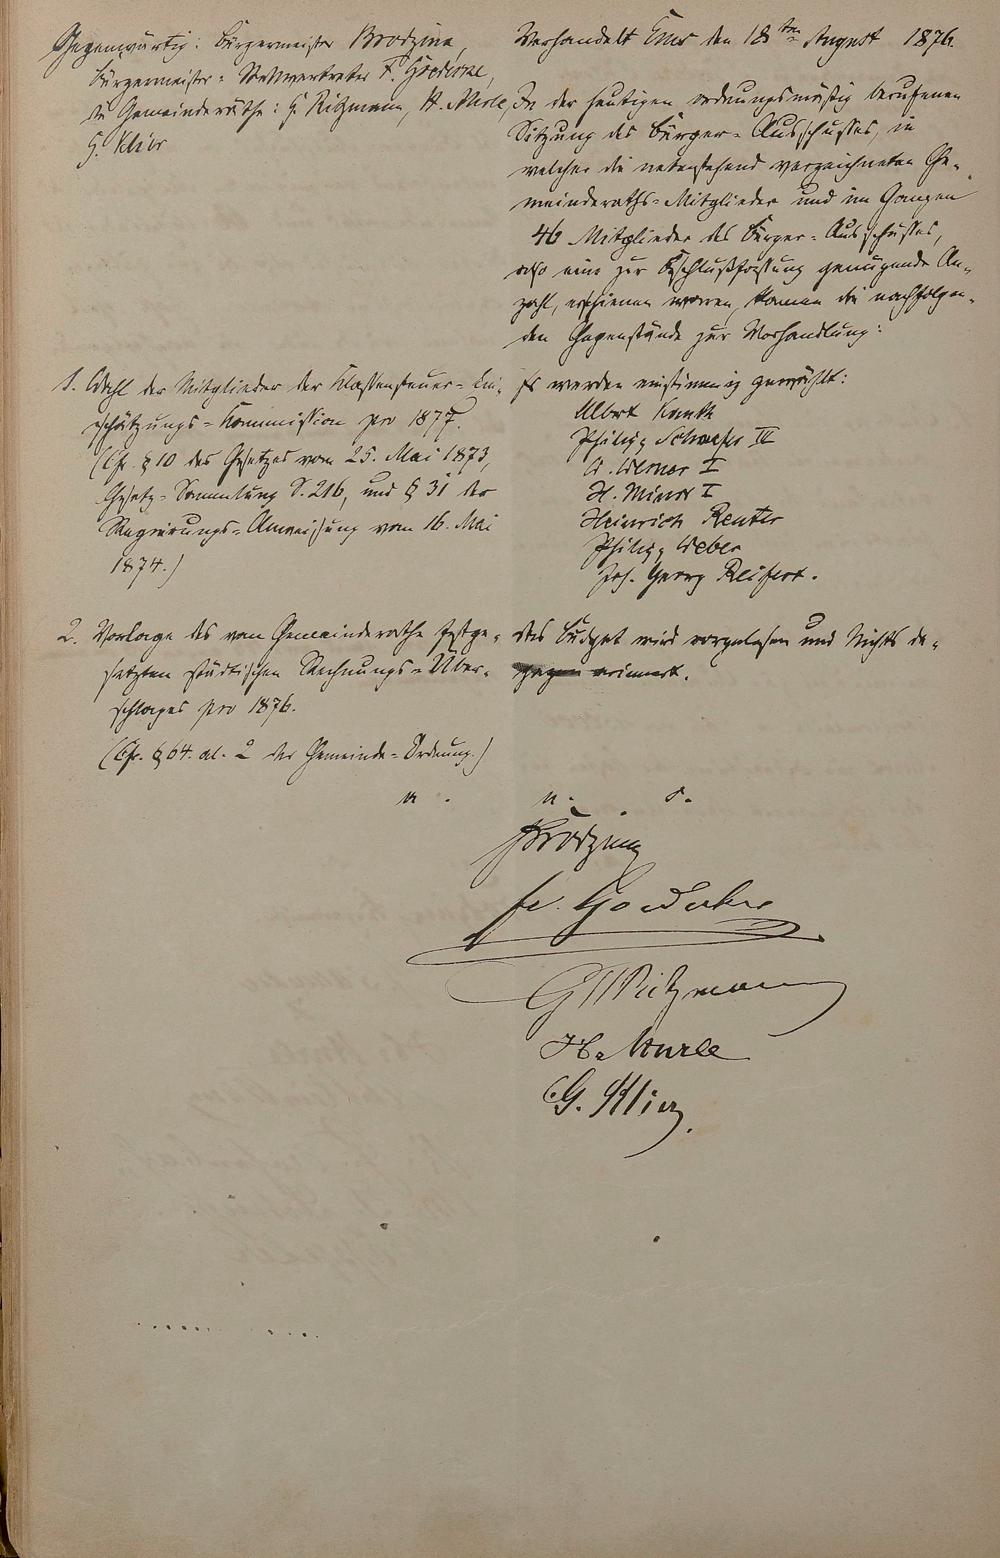 Gegenwärtig: Bürgermeister Brodzina,
Bürgermeister-Stellvertreter F. Goedecke,
die Gemeinderäthe: G. Ritzmann, H. Merle,
G. Klier
Verhandelt Ems den 18ten August 1876.
In der heutigen ordnungsmäßig berufenen
Sitzung des Bürger-Ausschusses, in
welcher die nebenstehend verzeichneten Ge-
meinderaths-Mitglieder und im Ganzen
46 Mitglieder des Bürger-Ausschusses,
also eine zur Beschlußfassung genügende An-
zahl, erschienen waren, kamen die nachfolgen-
den Gegenstände zur Verhandlung:
1. Wahl der Mitglieder der Klassensteuer-Ein-
schätzungs-Kommission pro 1877.
(Cfr. § 10 des Gesetzes vom 25. Mai 1873,
Gesetz-Sammlung S. 216, und § 31 der
Regierungs-Anweisung vom 16. Mai
1874.)
Es werden einstimmig gewählt:
Albert Kauth
Philipp Schaefer III
W. Werner I
H. Minor I
Heinrich Reuter
Philipp Weber
Joh. Georg Reifert.
2. Vorlage des vom Gemeinderathe festge-
setzten städtischen Rechnungs-Über-
schlages pro 1876.
(Cfr. § 64. al. 2 der Gemeinde-Ordnung.)
Das Budget wird vorgelesen und Nichts da-
gegen erinnert.
a. u. s.
Brodzina
Fr. Goedecke
G Ritzmann
H. Merle
G. Klier